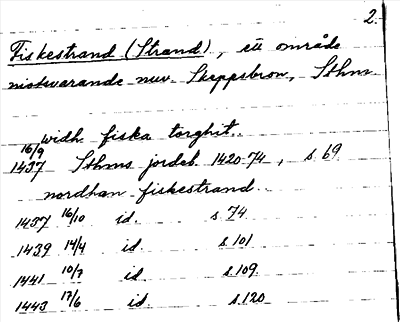 2.
Fiskestrand (Strand), ett område
motsvarande nuv. Skeppsbron, Sthm.
widh fiska torghit.
1437 16/9 Sthms jordeb. 1420-74, s 69
nordhan fiskestrand.
1437 16/10 id. s 74
1439 14/4 id. s 101
1441 10/7 id. s 109.
1443 17/6 id. s 120